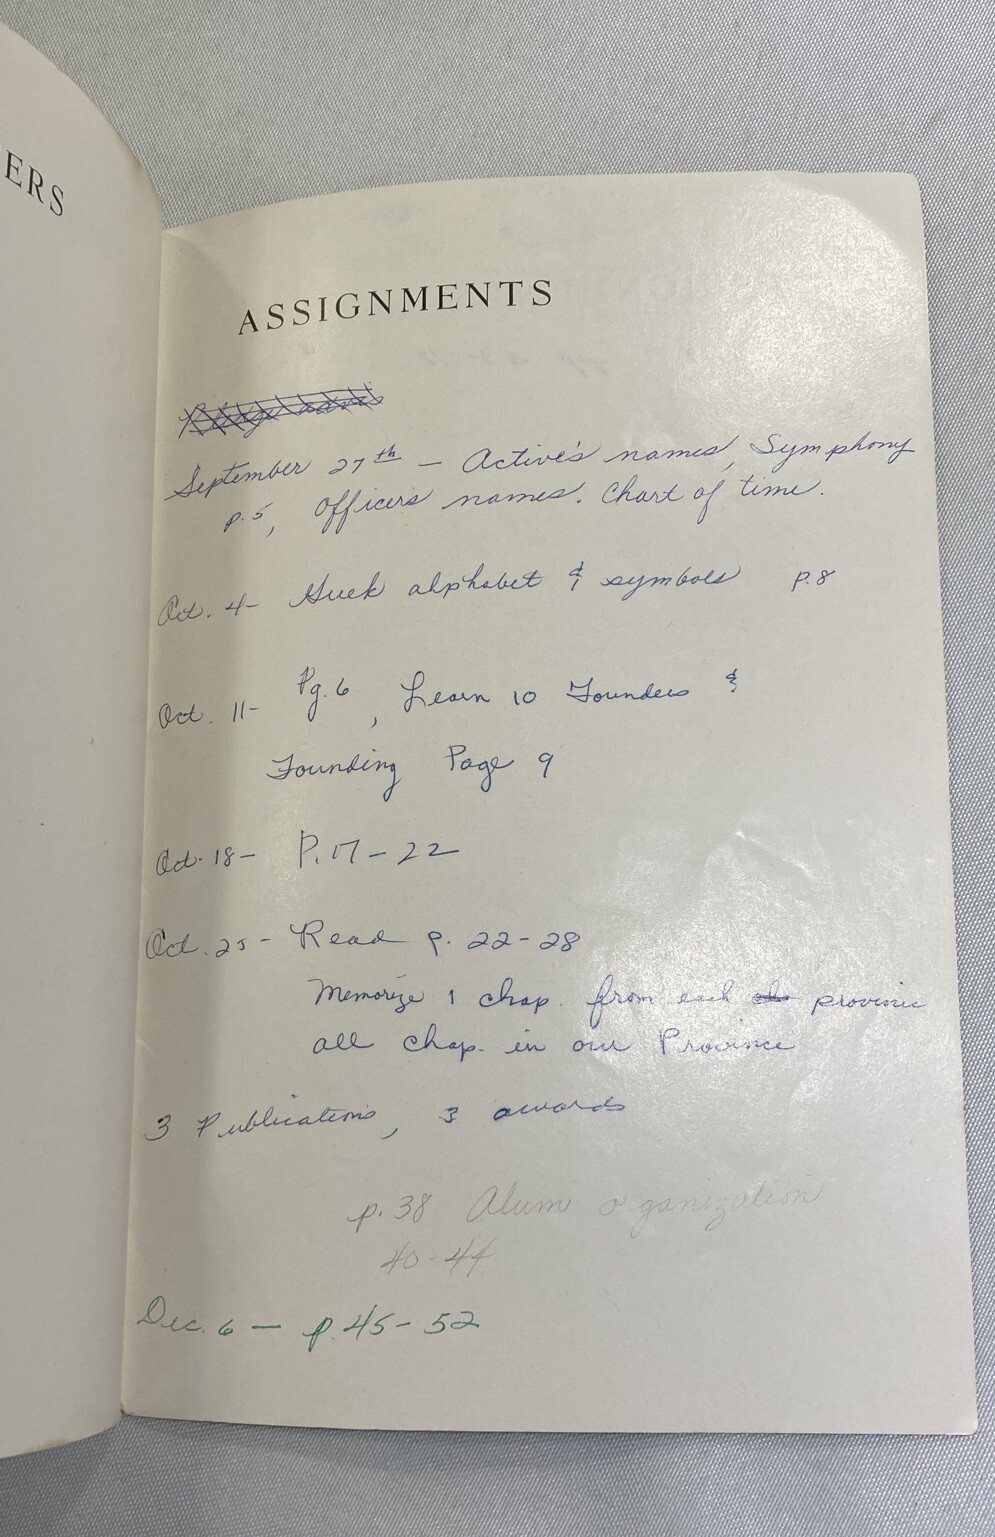 ERS
ASSIGNMENTS
September 27th — Active's names, Symphony
p.5, Officers names. Chart of time.
Oct. 4- Greek alphabet & symbols p.8
Oct. 11- Pg. 6, Learn 10 Founders &
Founding Page 9
Oct. 18- P. 17-22
Oct. 25- Read p. 22-28
Memorize 1 chap. from each province
all chap. in our Province
3 Publications, 3 awards
p. 38 Alum organization
40-44
Dec. 6 — p. 45-52